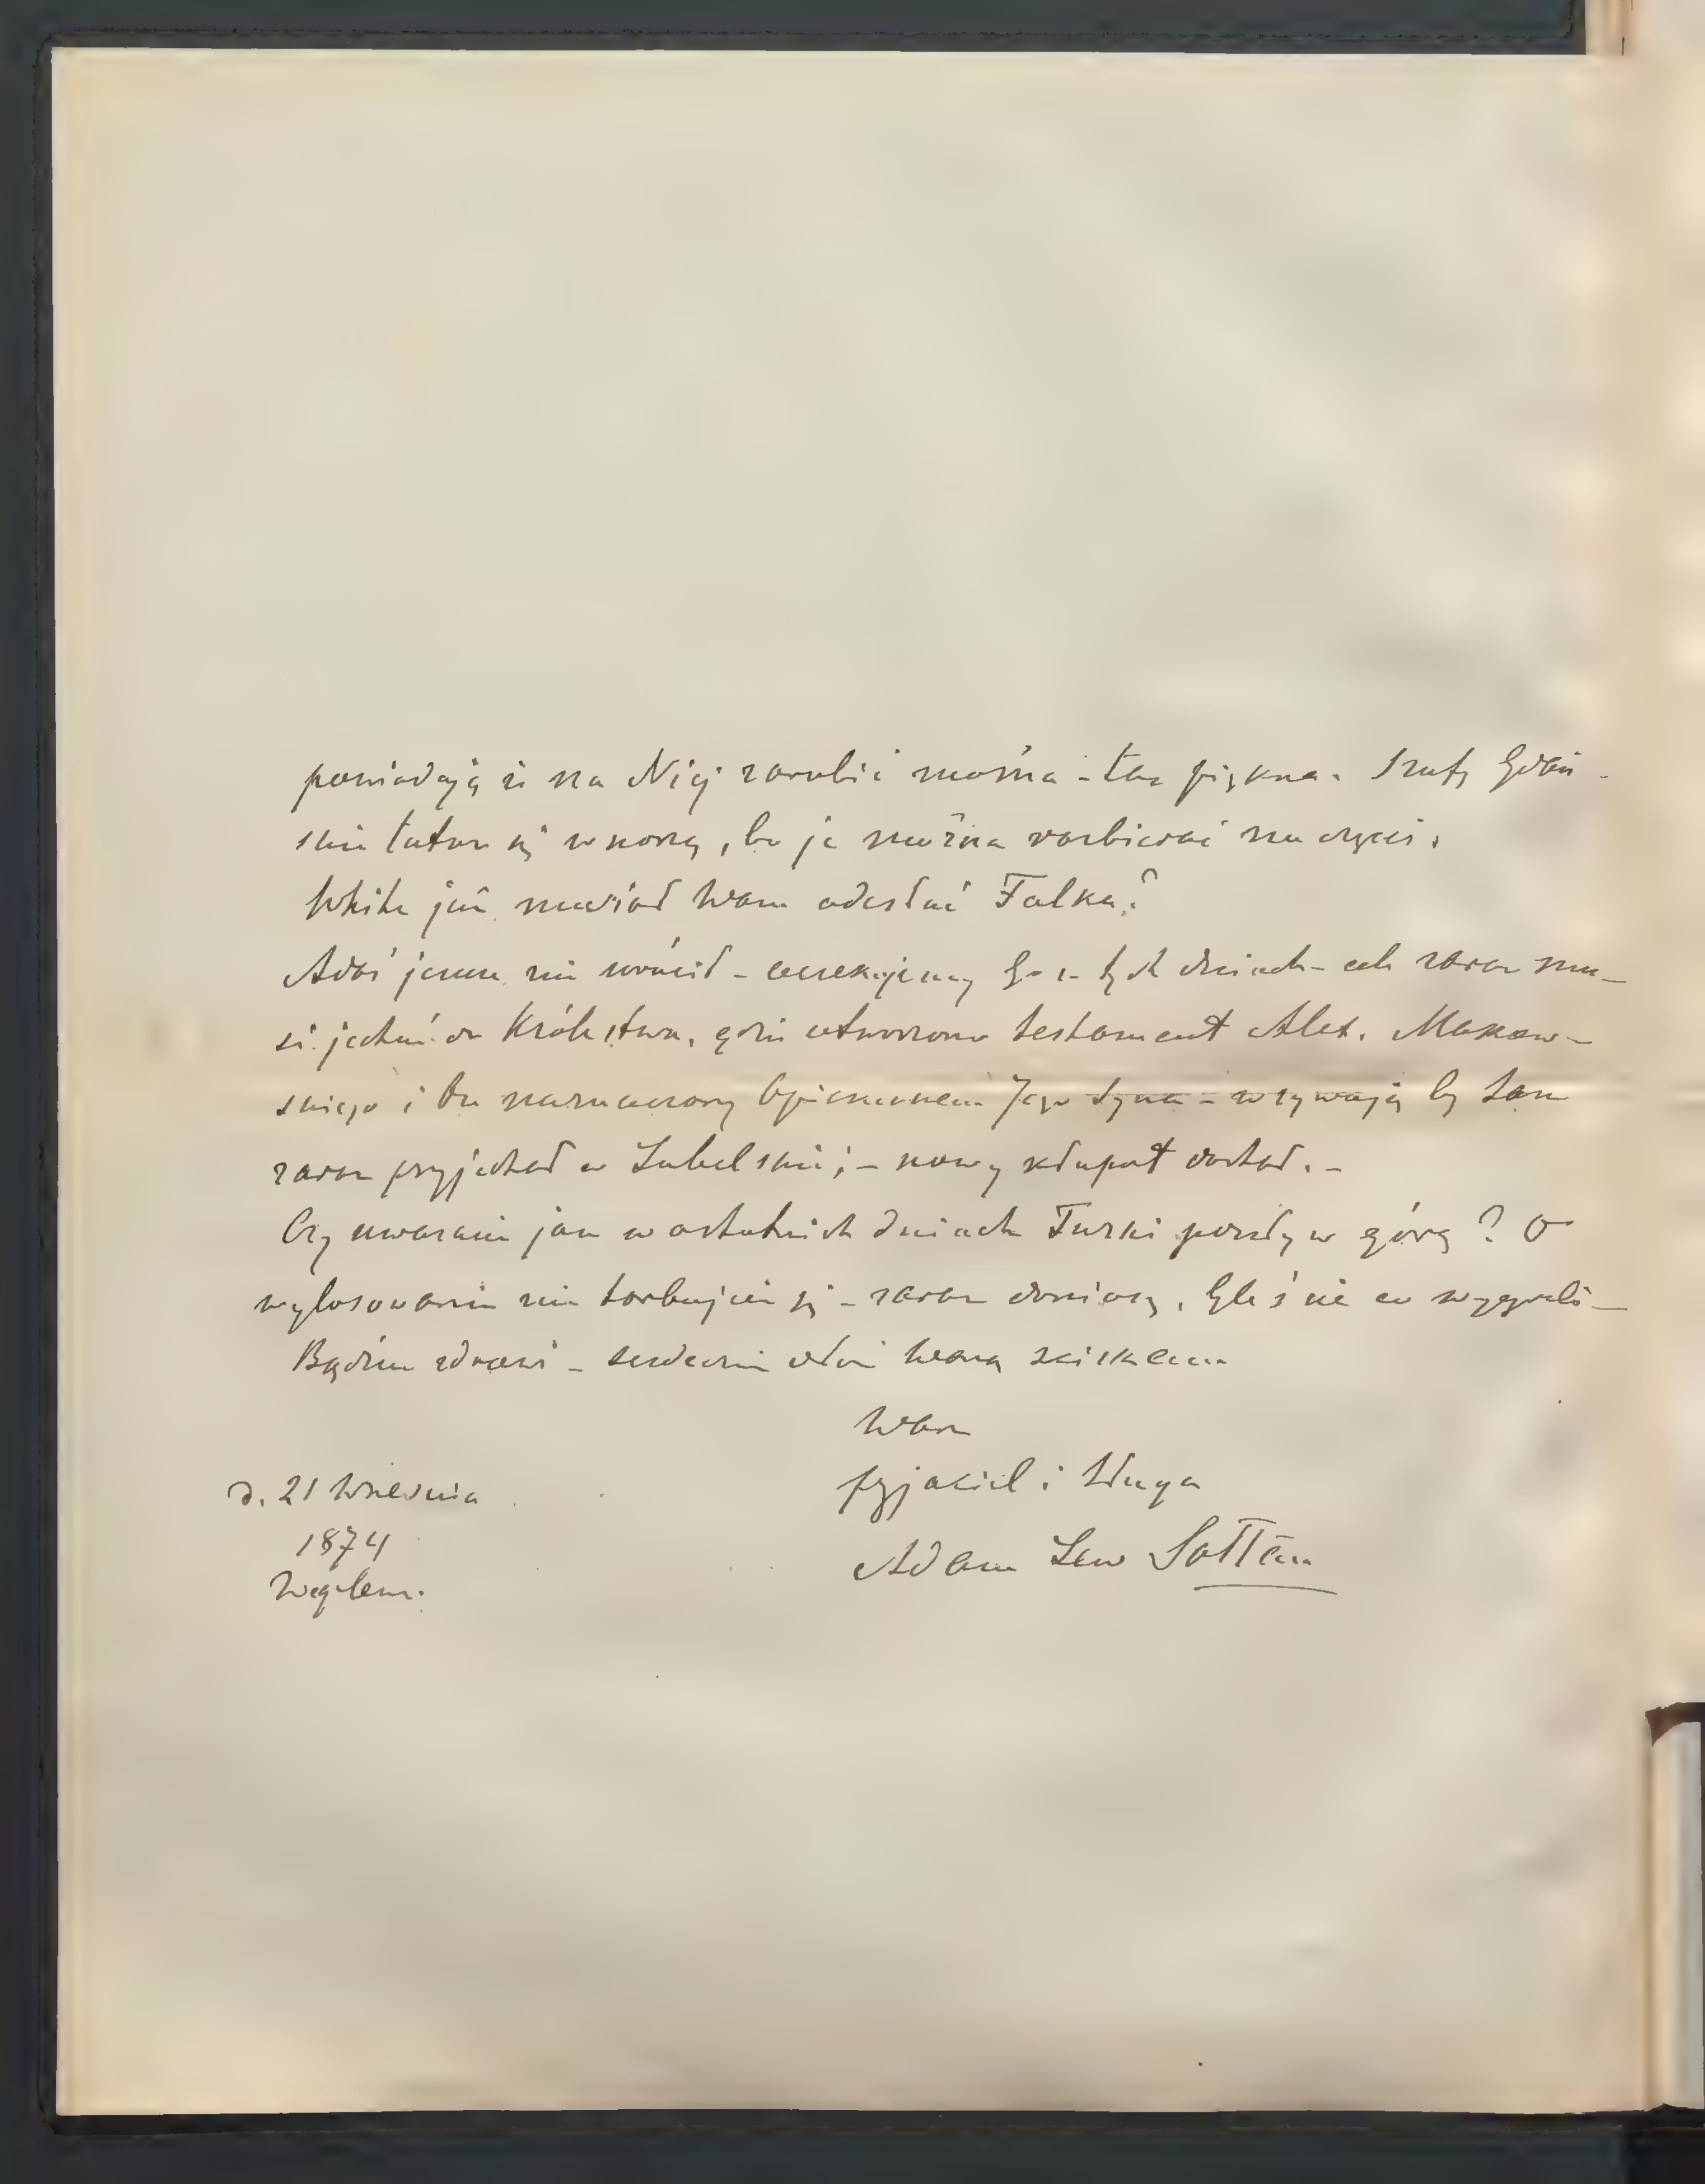 powiadają że na Niéj zarobić można – tak piękna. Szafy Gdań-
skie tutaj się wnoszą, bo je można rozbierać na części.
White już musiał Wam odesłać Falka?
Adaś jeszcze nie wrócił – oczekujemy Go w tych dniach – ale zaraz mu-
si jechać do Królestwa, gdzie otworzono testament Alex. Makow-
skiego i On naznaczony Opiekunem Jego Syna – wzywają by tam
zaraz przyjechał w Lubelskie; – nowy kłopot dostał. –
Czy uważacie jak w ostatnich dniach Turki poszły w górę? O
wylosowanie nie turbujcie się – zaraz doniosę, byleście co wygrali –
Bądźcie zdrowi – serdecznie dłoń Waszą ściskam
Wasz
przyjaciel i Sługa
Adam Lew Sołtan
d. 21 Września
1874